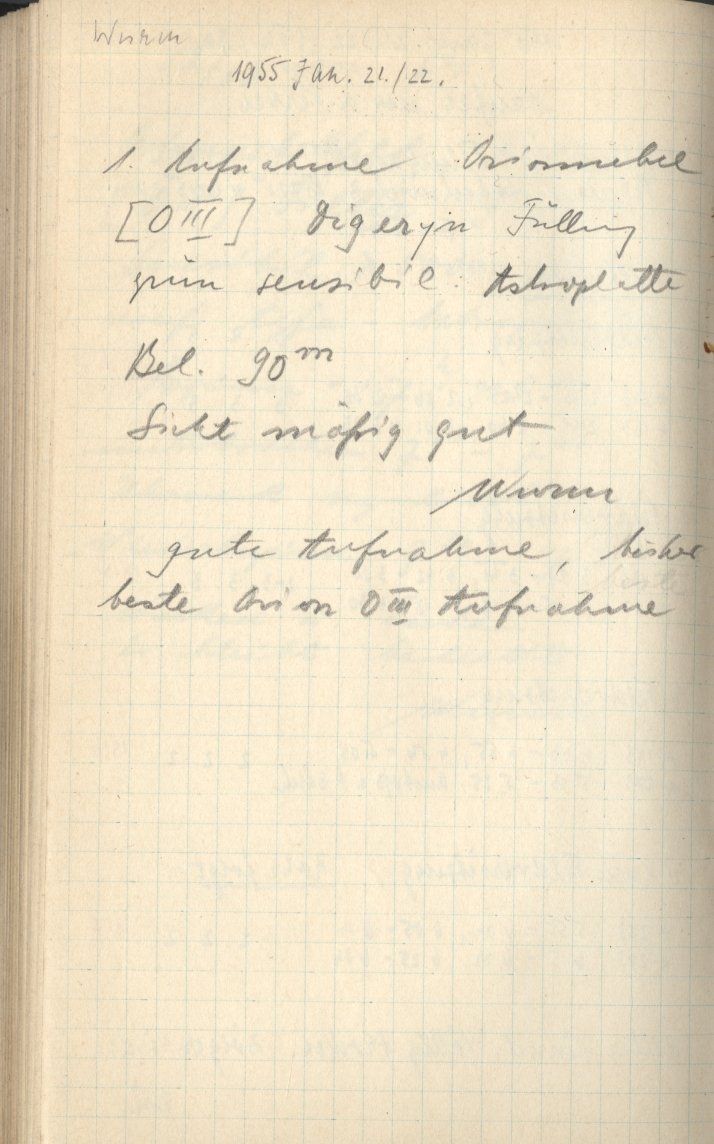 Wurm
1955 Jan. 21./22.
1. Aufnahme Orionnebel
[O III] Digeryn Füllung
grün sensibil. Astroplatte
Bel. 90m
Sicht mäßig gut
Wurm
gute Aufnahme, bisher
beste Orion O III Aufnahme